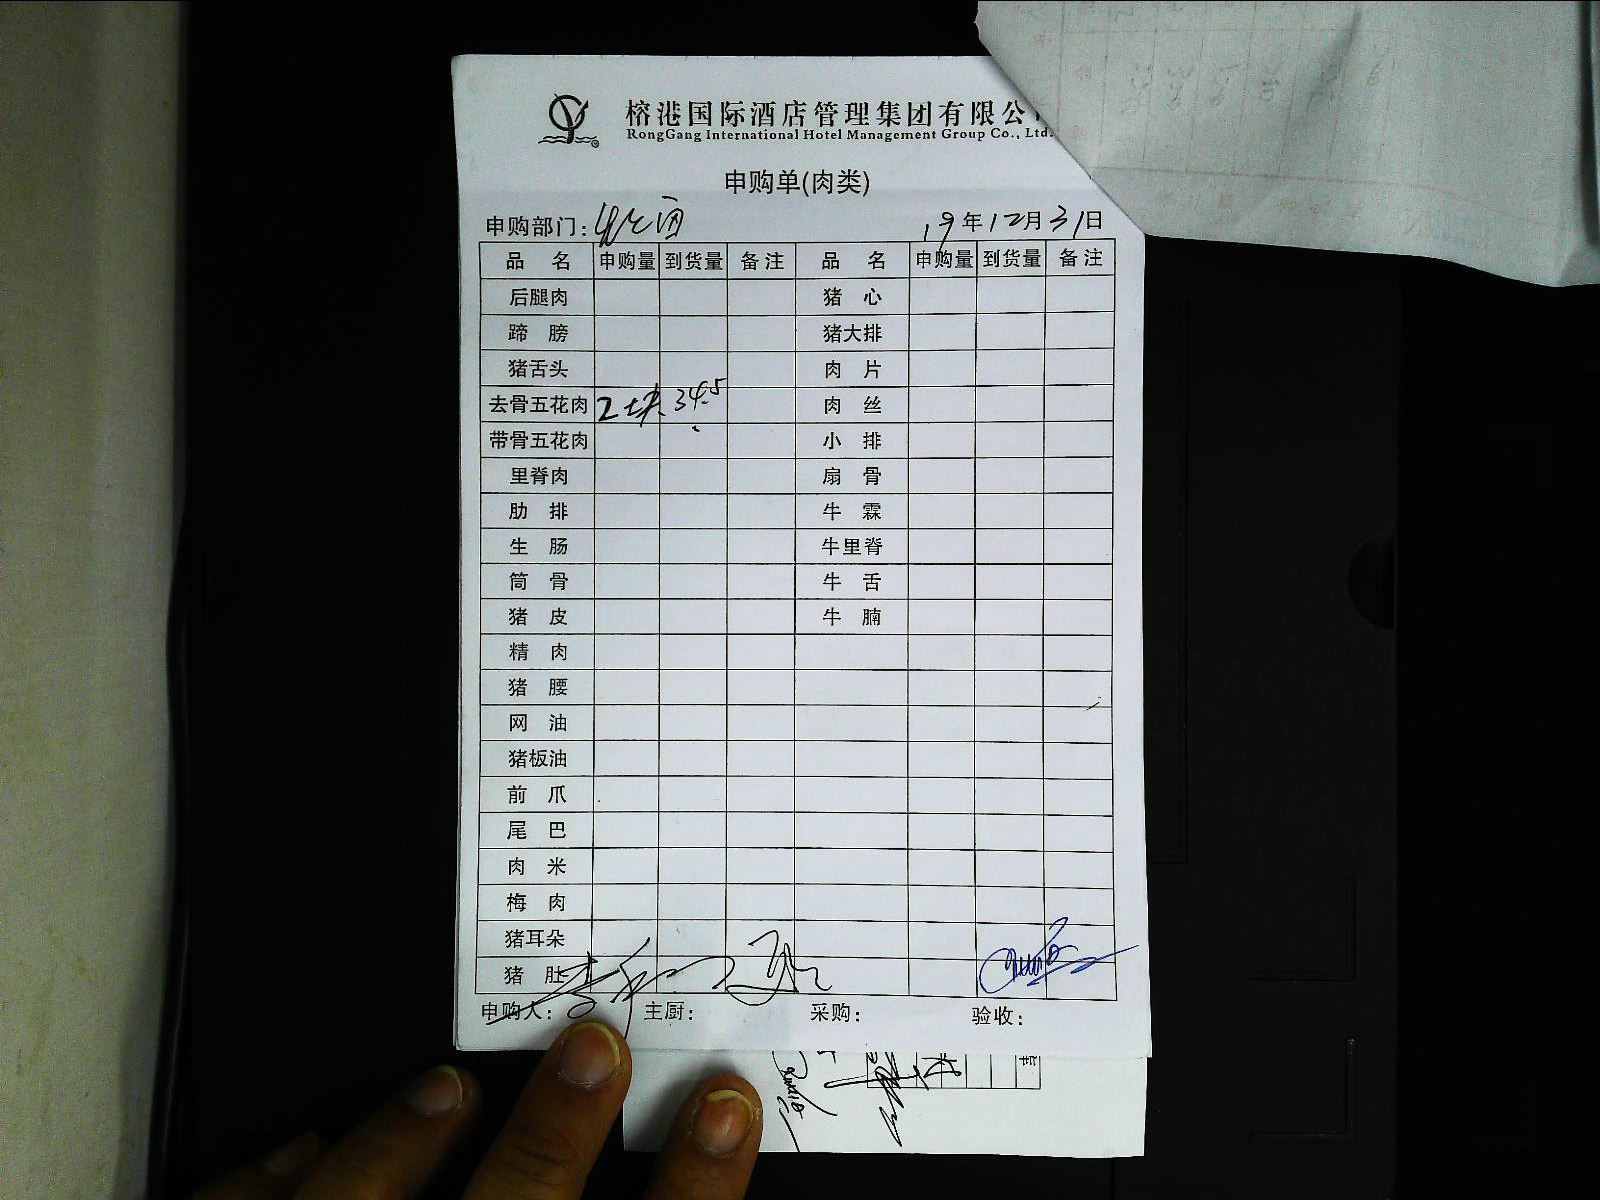 榕港国际酒店管理集团有限公
RongGang International Hotel Management Group Co., Ltd.
申购单(肉类)
申购部门: 19年12月31日
品名 申购量 到货量 备注 品名 申购量 到货量 备注
后腿肉 猪心
蹄膀 猪大排
猪舌头 肉片
去骨五花肉 2块 34.5 肉丝
带骨五花肉 小排
里脊肉 扇骨
肋排 牛霖
生肠 牛里脊
筒骨 牛舌
猪皮 牛腩
精肉
猪腰
网油
猪板油
前爪
尾巴
肉米
梅肉
猪耳朵
猪肚
申购人: 主厨: 采购: 验收: